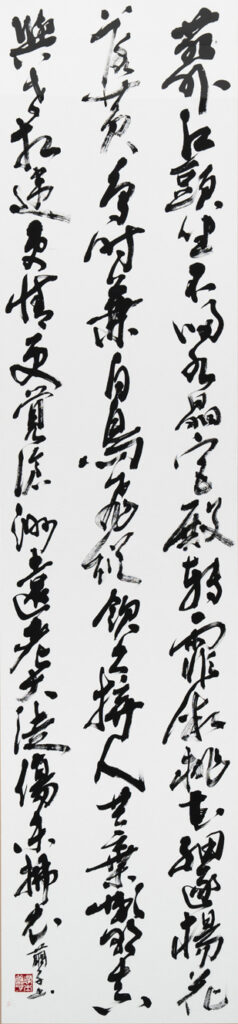 苑外江頭坐不歸水晶宮殿轉霏微桃花細逐楊花
落黃鳥時兼白鳥飛縱飲久拚人共棄懶朝真
與世相違吏情更覺滄洲遠老大徒傷未拂衣